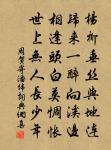 楊柳垂絲與地連
歸來一醉向溪邊
相逢頭白莫惆悵
世上無人長少年
周賀寄潘緯訢典橱長